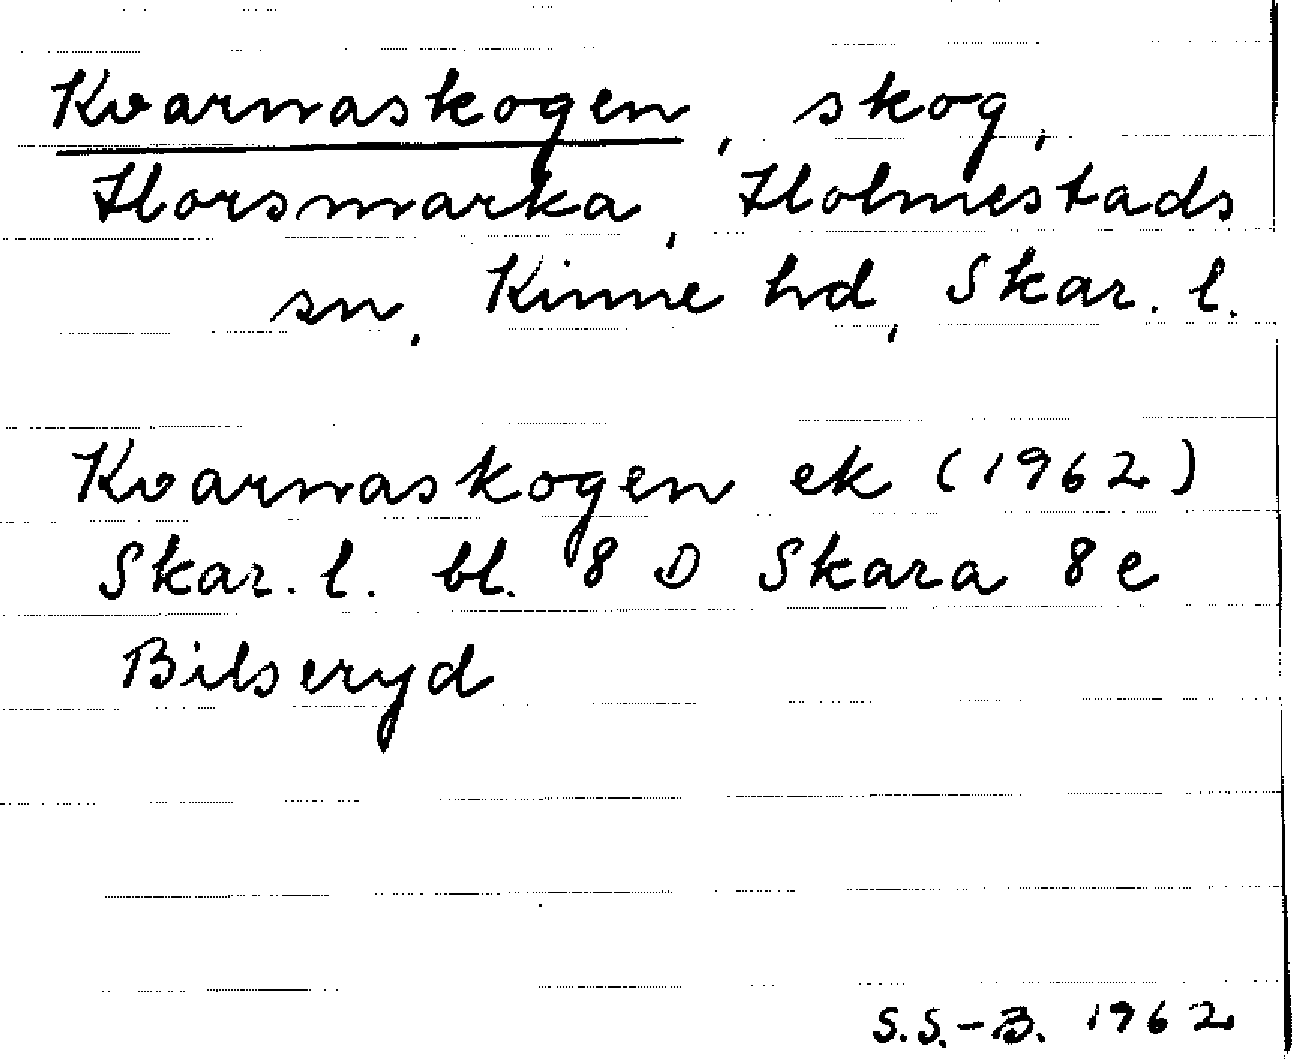 Kvarnaskogen, skog,
Horsmarka, Holmestads
sn, Kinne hd, Skar. l.
Kvarnaskogen ek (1962)
Skar. l. bl. 8 D Skara 8 e
Bilseryd
S.S.-B. 1962